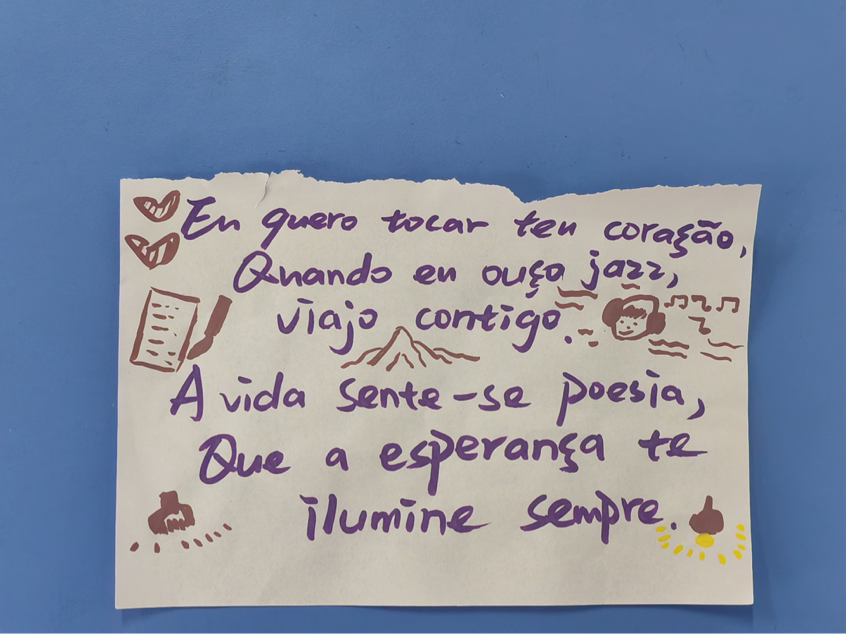 Eu quero tocar teu coração,
Quando eu ouço jazz,
viajo contigo.
A vida sente-se poesia,
Que a esperança te
ilumine sempre.